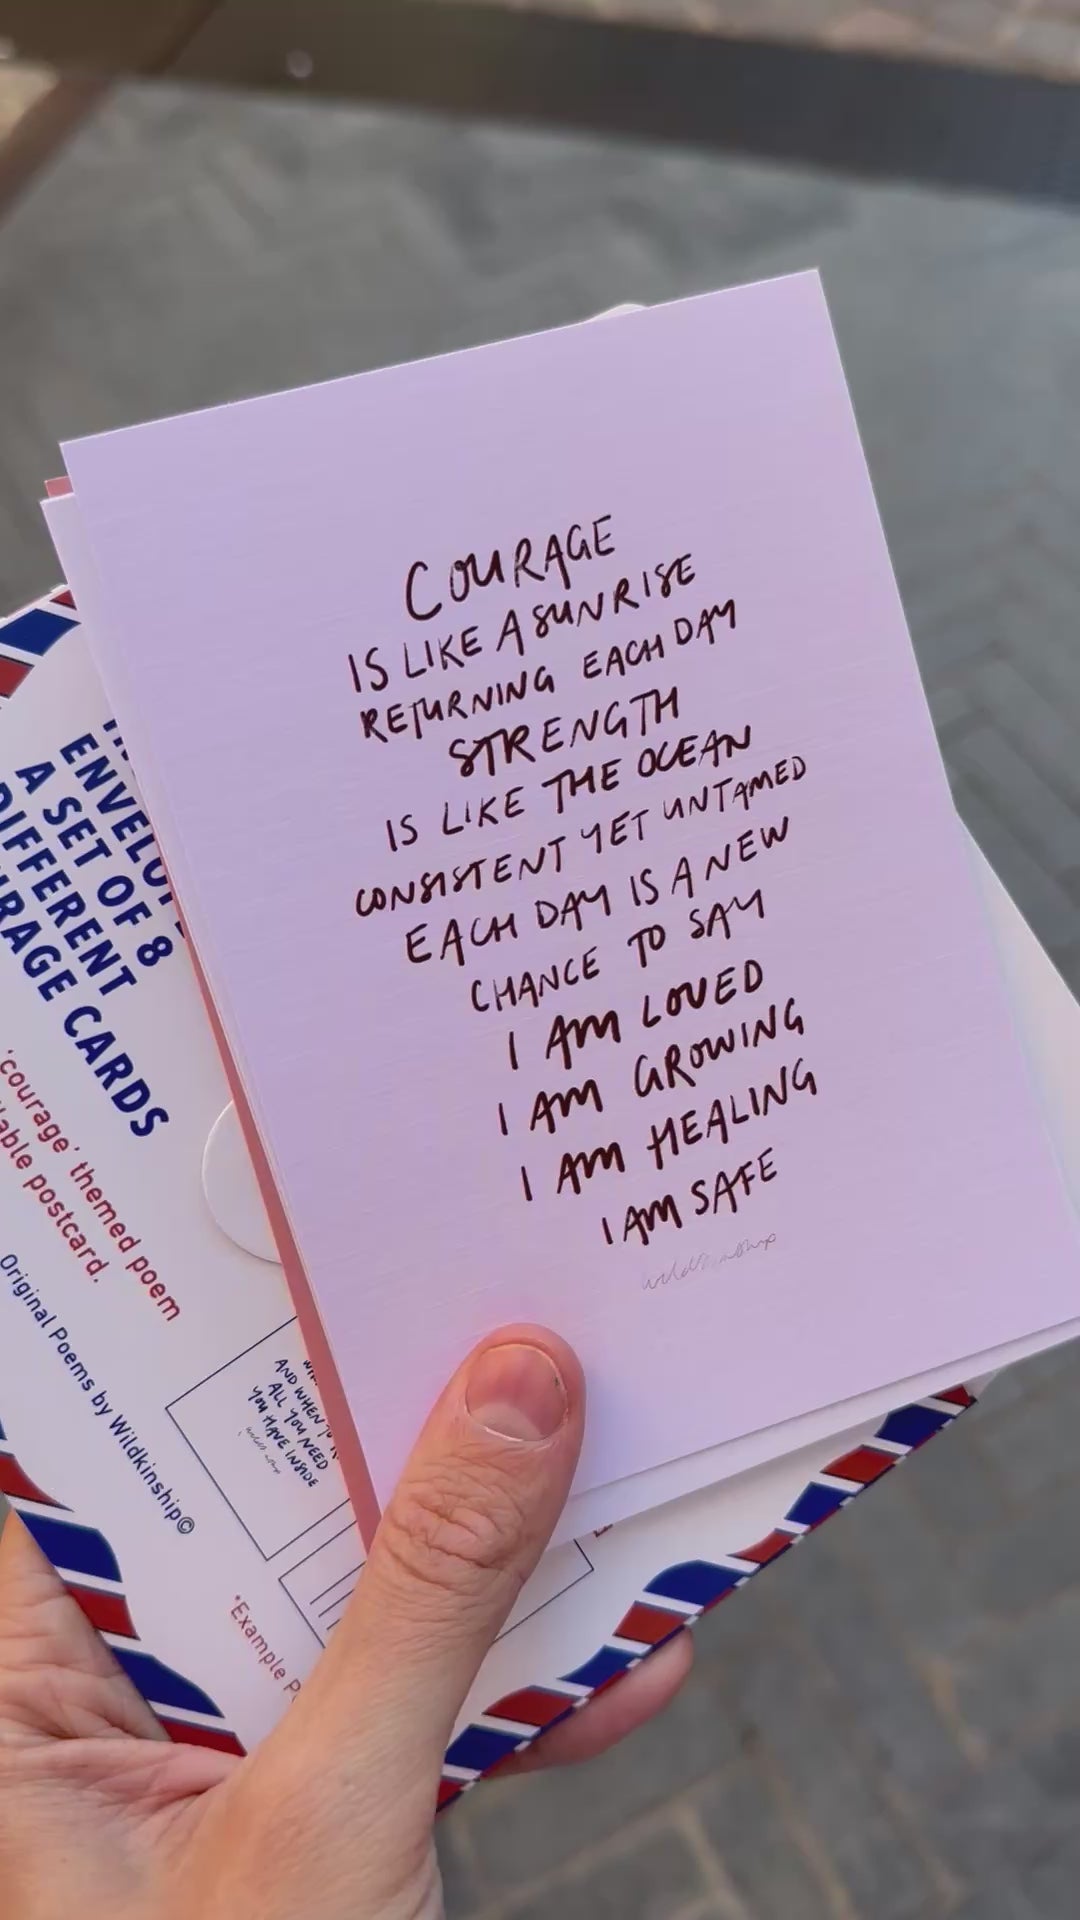 COURAGE
IS LIKE A SUNRISE
RETURNING EACH DAY
STRENGTH
IS LIKE THE OCEAN
CONSISTENT YET UNTAMED
EACH DAY IS A NEW
CHANCE TO SAY
I AM LOVED
I AM GROWING
I AM HEALING
I AM SAFE
wildkinship
ENVELOP
A SET OF 8
DIFFERENT
RAGE CARDS
'courage' themed poem
lable postcard.
Original Poems by Wildkinship©
AND WHEN
ALL YOU NEED
YOU HAVE INSIDE
*Example P